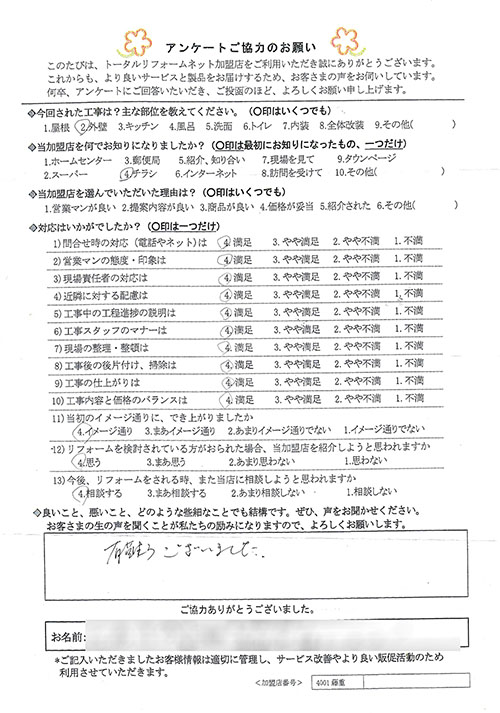 アンケートご協力のお願い
このたびは、トータルリフォームネット加盟店をご利用いただき誠にありがとうございます。
これからも、より良いサービスと製品をお届けするため、お客さまの声をお伺いしています。
何卒、アンケートにご回答いただいたい、ご投函のほど、よろしくお願い申し上げます。
◆今回された工事は？主な部位を教えてください。（〇印はいくつでも）
1.屋根 2.外壁 3.キッチン 4.風呂 5.洗面 6.トイレ 7.内装 8.全体改装 9.その他( )
◆当加盟店を何でお知りになりましたか？（〇印は最初にお知りになったもの、一つだけ）
1.ホームセンター 3.郵便局 5.紹介、知り合い 7.現場を見て 9.タウンページ
2.スーパー 4.チラシ 6.インターネット 8.訪問を受けて 10.その他( )
◆当加盟店を選んでいただいた理由は？（〇印はいくつでも）
1.営業マンが良い 2.提案内容が良い 3.商品が良い 4.価格が妥当 5.紹介された 6.その他( )
◆対応はいかがでしたか？（〇印は一つだけ）
1)問合せ時の対応（電話やネット)は 4.満足 3.やや満足 2.やや不満 1.不満
2)営業マンの態度・印象は 4.満足 3.やや満足 2.やや不満 1.不満
3)現場責任者の対応は 4.満足 3.やや満足 2.やや不満 1.不満
4)近隣に対する配慮は 4.満足 3.やや満足 2.やや不満 1.不満
5)工事中の工程進捗の説明は 4.満足 3.やや満足 2.やや不満 1.不満
6)工事スタッフのマナーは 4.満足 3.やや満足 2.やや不満 1.不満
7)現場の整理・整頓は 4.満足 3.やや満足 2.やや不満 1.不満
8)工事後の後片付け、掃除は 4.満足 3.やや満足 2.やや不満 1.不満
9)工事の仕上がりは 4.満足 3.やや満足 2.やや不満 1.不満
10)工事内容と価格のバランスは 4.満足 3.やや満足 2.やや不満 1.不満
11)当初のイメージ通りに、でき上がりましたか
4.イメージ通り 3.まあイメージ通り 2.あまりイメージ通りでない 1.イメージ通りでない
12)リフォームを検討されている方がおられた場合、当加盟店を紹介しようと思われますか
4.思う 3.まあ思う 2.あまり思わない 1.思わない
13)今後、リフォームをされる時、また当店に相談しようと思われますか
4.相談する 3.まあ相談する 2.あまり相談しない 1.相談しない
◆良いこと、悪いこと、どのような些細なことでも結構です。ぜひ、声をお聞かせください。
お客さまの生の声を聞くことが私たちの励みになりますので、よろしくお願いします。
有難うございました。
ご協力ありがとうございました。
お名前:
*ご記入いただきましたお客様情報は適切に管理し、サービス改善やより良い販促活動のため
利用させていただきます。
<加盟店番号> 4001 藤重